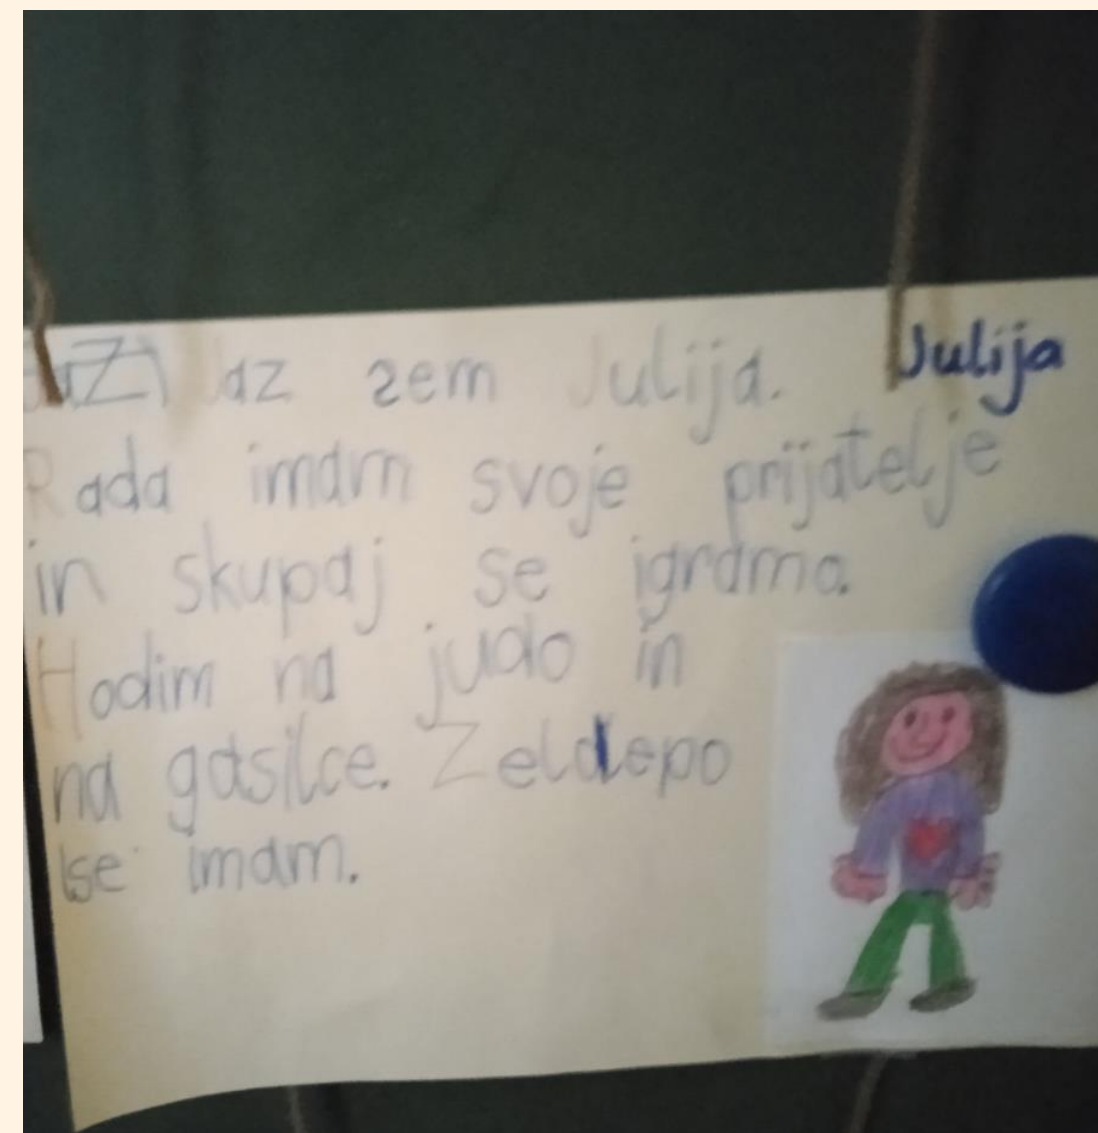 Jaz sem Julija. Julija
Rada imam svoje prijatelje
in skupaj se igrama.
Hodim na judo in
na gasilce. Zeldepo
se imam.